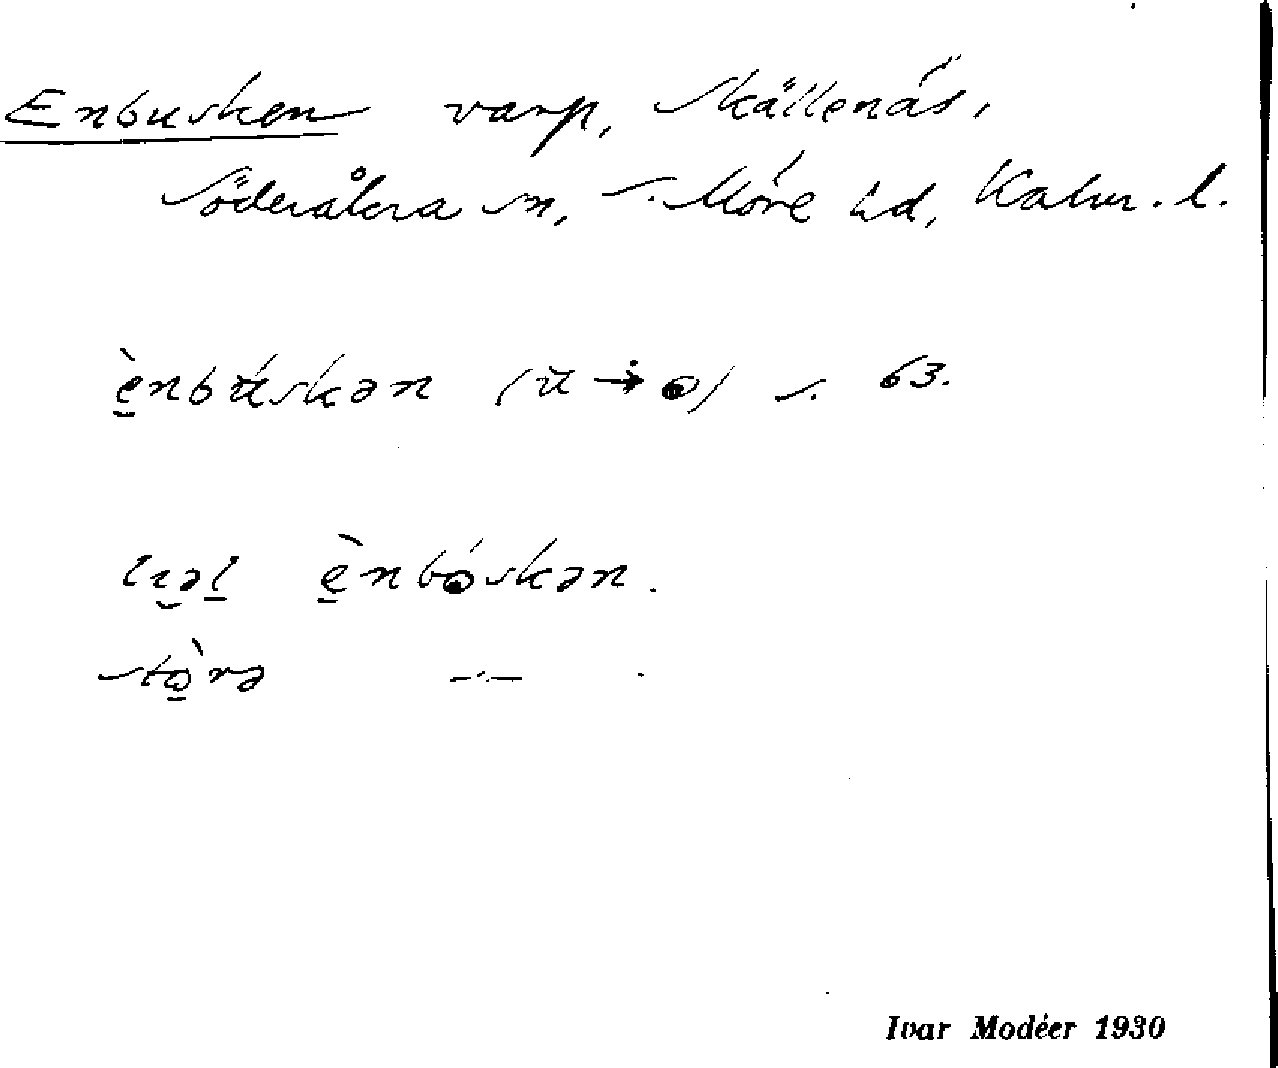 Enbusken varp, Skällenäs,
Söderåkra sn, S. Möre hd, Kalm. l.
ènbuskən (u → o) s. 63.
ènbóskən.
-"- .
Ivar Modéer 1930